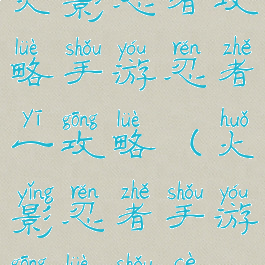 火影忍者攻
lüè shǒu yóu rěn zhě
略手游忍者
yī gōng lüè huǒ
一攻略（火
yǐng rěn zhě shǒu yóu
影忍者手游
gōng lüè shǒu cè